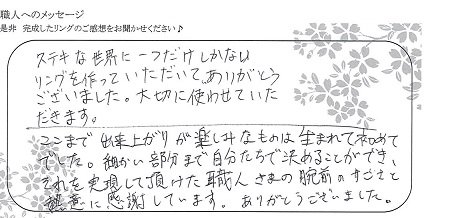 職人へのメッセージ
是非 完成したリングのご感想をお聞かせください♪
ステキな世界に一つだけしかない
リングを作っていただいて、ありがとう
ございました。大切に使わせていた
だきます。
ここまで出来上がりが楽しみなものは生まれて初めて
でした。細かい部分まで自分たちで決めることができ、
それを実現して頂けた職人さまの腕前のすごさと
熱意に感謝しています。ありがとうございました。